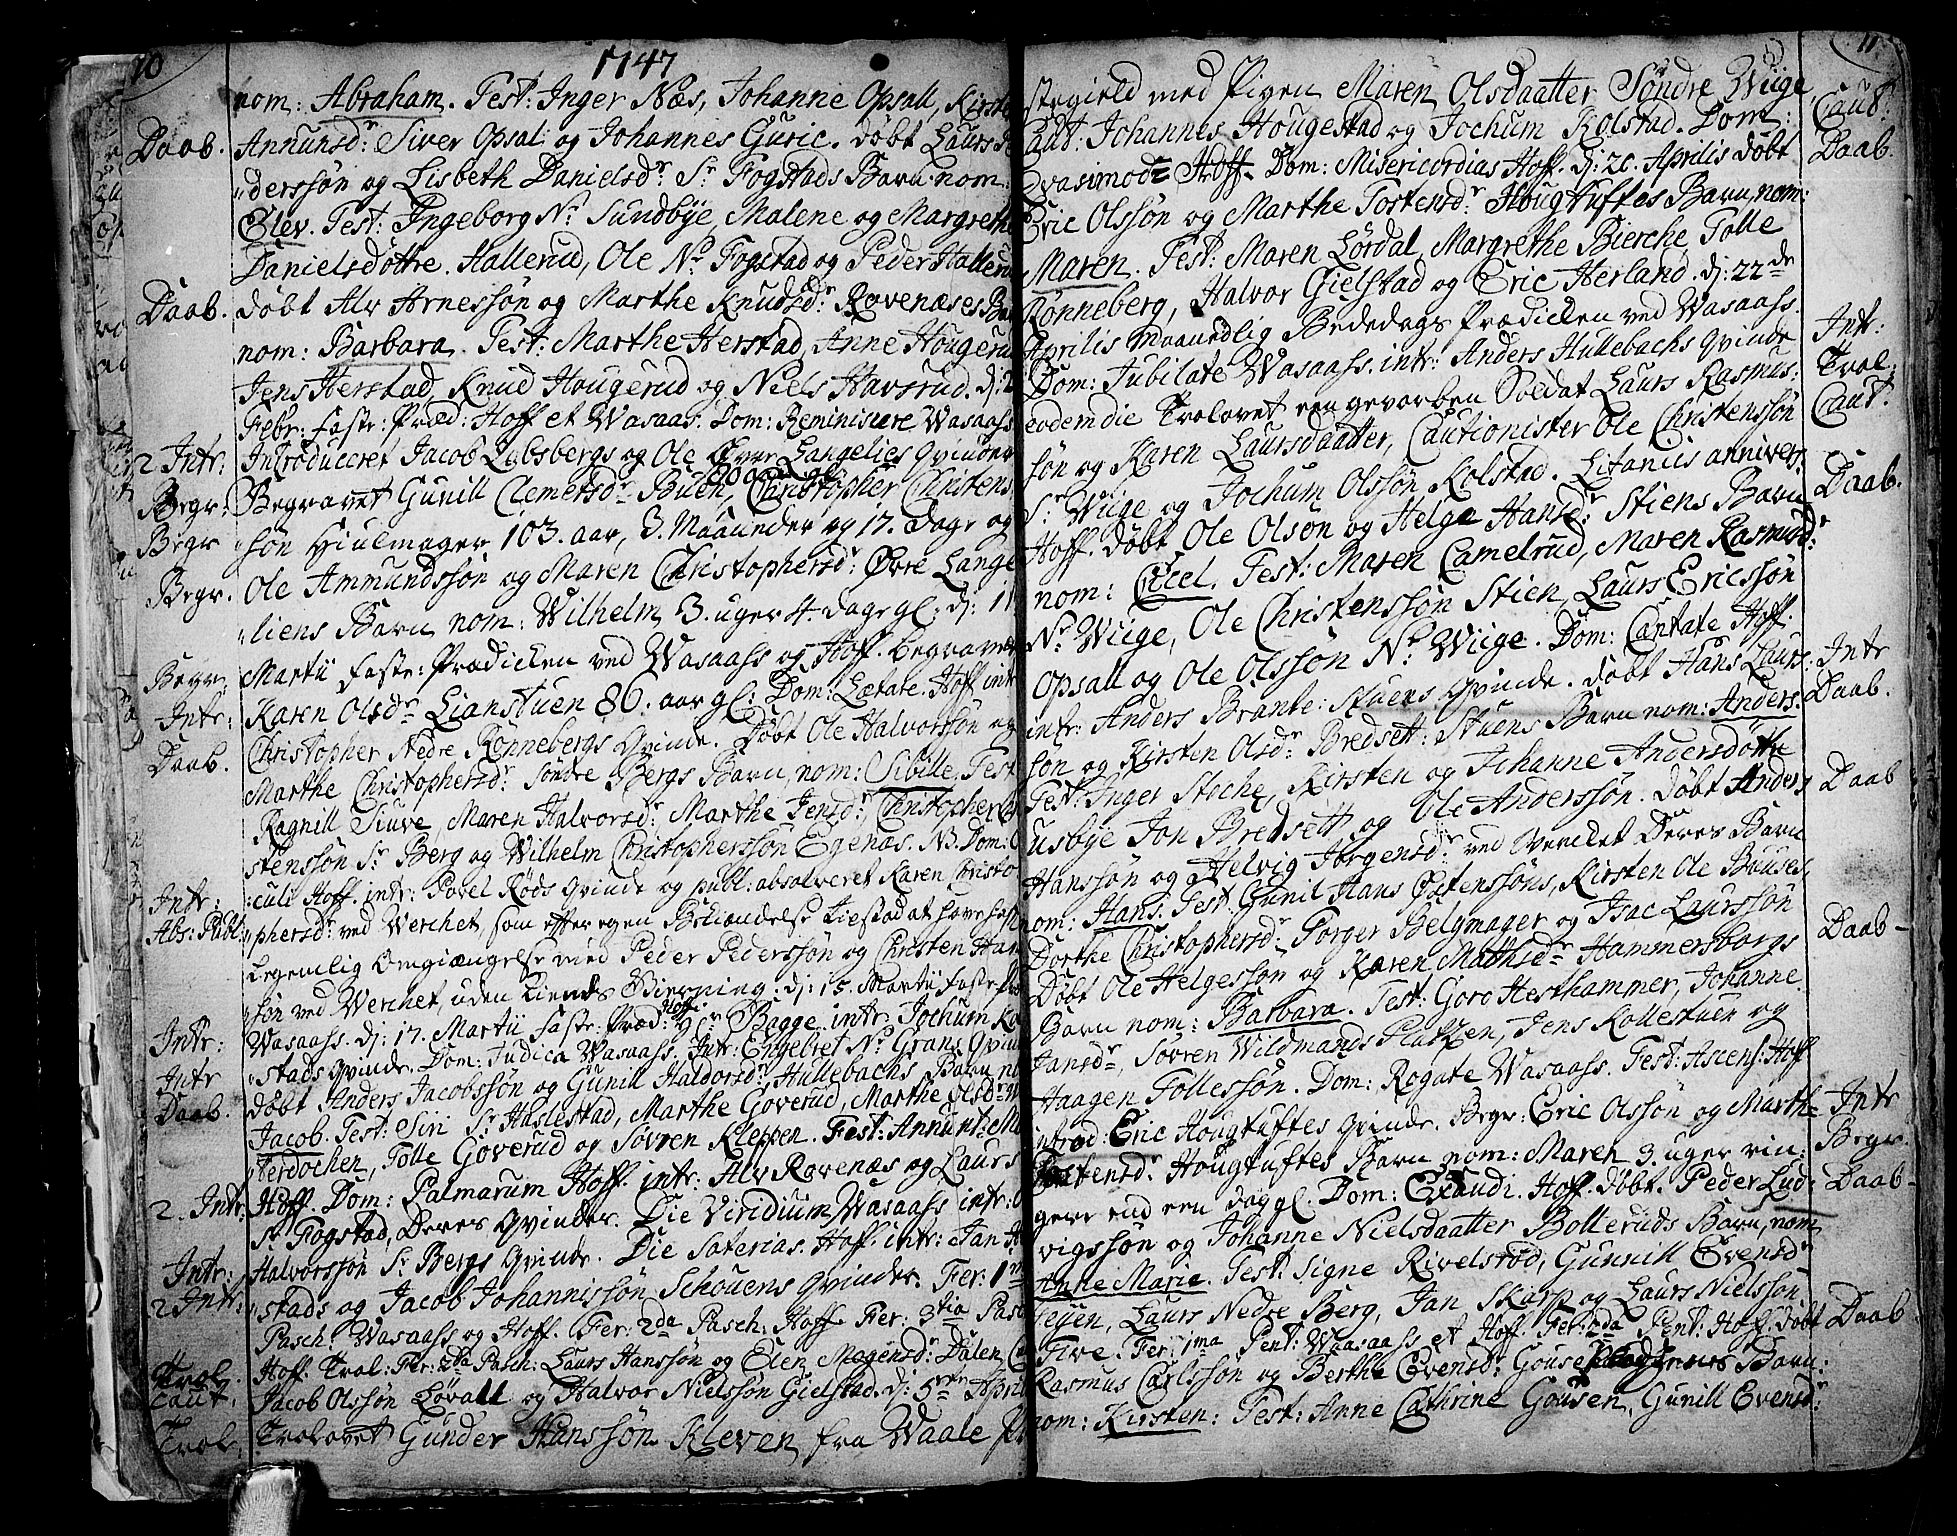 10
1747
nom: Abraham. Test: Inger Næs, Johanne Opsall, Kirst
Daab. Annunsdr: Siver Opsal: og Johannes Guric. døbt Laurs
"derssøn og Lisbeth Danielsdr Sr Fogstads Barn nom:
Elev. Test: Ingeborg Nr Sundbÿe, Malene og Margrethe
Danielsdøttre. Hallerud, Ole Nr Fogstad og Peder Halleru
Daab. døbt Alv Arnessøn og Marthe Knudsdr Rovenæses Bar
nom: Barbara. Test: Marthe Herstad, Anne Hougerud
Jens Herstad, Knud Hougerud og Niels Havsrud. dj: 2
Febr: faste: Præd: Hoff et Wasaas. Dom: Reminiscere Wasaass
2 Intr: Introduceret Jacob Labsbergs og Ole Langelies qvinder
Begr: Begravet Gunill Clemetsdr Buen, Christopher Christens
Begr søn Hiulmager 103. aar, 3. Maaneder og 17. Dage og
Begr. Ole Ammundssøn og Maren Christophersdr: Øvre Lange
"liens Barn nom: Wilhelm 3. uger 4. dage gl: dj: 11
Begr: Martii faste: Prædicken ved Wasaass og Hoff. begravet
Intr: Karen Olsdr Lianstuen 86. aar gl: Dom: Lætare. Hoff intr
Daab. Christopher Nedre Rønnebergs qvinde. Døbt Ole Halvorssøn og
Marthe Christophersdr Søndre Bergs Barn, nom: Sibille, Test
Ragnill Tiuve, Maren Halvorsdr: Marthe Jensdr, Christopher Chri
stenssøn Sr Berg og Wilhelm Christopherssøn Egenæs. NB. Dom: O
Intr: :culi Hoff. intr: Povel Røds qvinde og publ: absolveret Karen Christo
Abs: Publ: "phersdr ved Werchet, som efter egen Bekiendelse tiestad at have haft
Legemlig Omgiængelse med Peder Pederssøn og Christen Han
"søn ved Werchet, uden Kiends Gierning. dj: 15. Martii faste pr
Intr: Wasaass. dj: 17. Martii faste: Præd: Hoff Hr Bagge, intr: Jochum Kol
Intr "stads qvinde. Dom: Judica Wasaass. Intr: Engebret Nr Grans qvin
Daab. døbt Anders Jacobssøn og Gunill Haldorsdr, Hullebachs Barn no
Jacob. Test: Siri Sr Haslestad, Marthe Goverud, Marthe Olsdr W
"terdochen, Tolle Goverud og Søvren Kleppen. Fest: Annunt: M
2. Intr: Hoff. Dom: Palmarum Hoff. intr: Alv Rovenæs og Laurs
Sr Fogstad, Deres qvinder. Die Viridium Wasaass intr: O
Intr: Halvorssøn Sr Bergs qvinde. Die Soterias. Hoff. intr: Jan H
2 Intr: "stads og Jacob Johannissøn Schouens qvinder. Fer: 1ma
Pasch: Wasaass og Hoff. Fer: 2da Pasch: Hoff. Fer: 3tia Pasc
Trol. Hoff. Trol: Fer: 2da Pasch: Laurs Hanssøn og Eden Mogensdr: Dalen, Ca
Caut. Jacob Olssøn Løvall og Halvor Nielssøn Gielstad. dj: 5te Aprili
Trol. Trolovet Gunder Hanssøn Kleven fra Waale Pr
11.
stegield med Pigen Maren Olsdaatter Søndre Wiige,
Caut: Johannes Hougestad og Jochum Kolstad. Dom: Caut:
Qvasimod: Hoff. Dom: Misericordias Hoff. dj: 20. Aprilis døbt Daab.
Eric Olssøn og Marthe Tostensdr Hougtuftes Barn, nom:
Maren. Test: Maren Lørdal, Margrethe Bierche Tolle
Rønneberg, Halvor Gielstad og Eric Herland. dj: 22de
Aprilis maanedlig Bededags Prædicken ved Wasaass.
Dom: Jubilate Wasaass. intr: Anders Hullebachs qvinde Intr:
eodem die Trolovet een gevorben Soldat Laurs Rasmus: Trol:
søn og Karen Laursdaatter, Cautionister Ole Christenssøn Caut:
Sr Wiige og Jochum Olssøn Kolstad. Litaniis annivers:
Hoff. døbt Ole Olsøn og Helge Hansdr: Stiens Barn Daab.
nom: Cicel. Test: Maren Camelrud, Maren Rasmusdr
Nr Wiige, Ole Christenssøn Stien, Laurs Ericssøn
Opsall og Ole Olssøn Nr Wiige. Dom: Cantate Hoff.
intr: Anders Brante: Stuens qvinde. døbt Hans Laurs: Intr
søn og Kirsten Olsdr: Bredsett: Stuens Barn nom: Anders. Daab.
Test: Inger Stoche, Kirsten og Johanne Andersdøttr
usbÿe Jon Bredsett og Ole Anderssøn. døbt Anders Daab
Hanssøn og Helvig Jørgensdr: ved Werchet Deres Barn
nom: Hans. Test: Gunil Hans Østenssøns, Kirsten Ole Bauses,
Dorthe Christophersdr Torger Belgmager og Isac Laurssøn
Døbt Ole Helgessøn og Karen Mathisdr Hammersborgs Daab
Barn nom: Barbara. Test: Goro Hesthammer, Johanne
Jansdr, Søvren Wildmands Platzen, Jens Kollestuen og
Haagen Tollessøn. Dom: Rogate Wasaass. Fest: Ascens: Hoff
introd: Eric Hougtuftes qvinde. Begr: Eric Olssøn og Marthe Intr
Tostensdr Hougtuftes Barn nom: Maren 3. uger rin: Begr.
gere end een dag gl. Dom: Exaudi. Hoff. døbt. Peder Lud: Daab
vigssøn og Johanne Nielsdaatter Bolleruds Barn, nom
Anne Marie. Test: Signe Rivelsrød, Gunnill Evensdr
Teÿen, Laurs Nedre Berg, Jan Skarp og Laurs Nielssøn
Five. Fer: 1ma Pent: Wasaass et Hoff. Fer: 2da Pent: Hoff. døbt Daab
Rasmus Carlssøn og Berthe Evensdr: Barn:
nom: Kirsten: Test: Anne Cathrine Gousen, Gunill Evensdr: